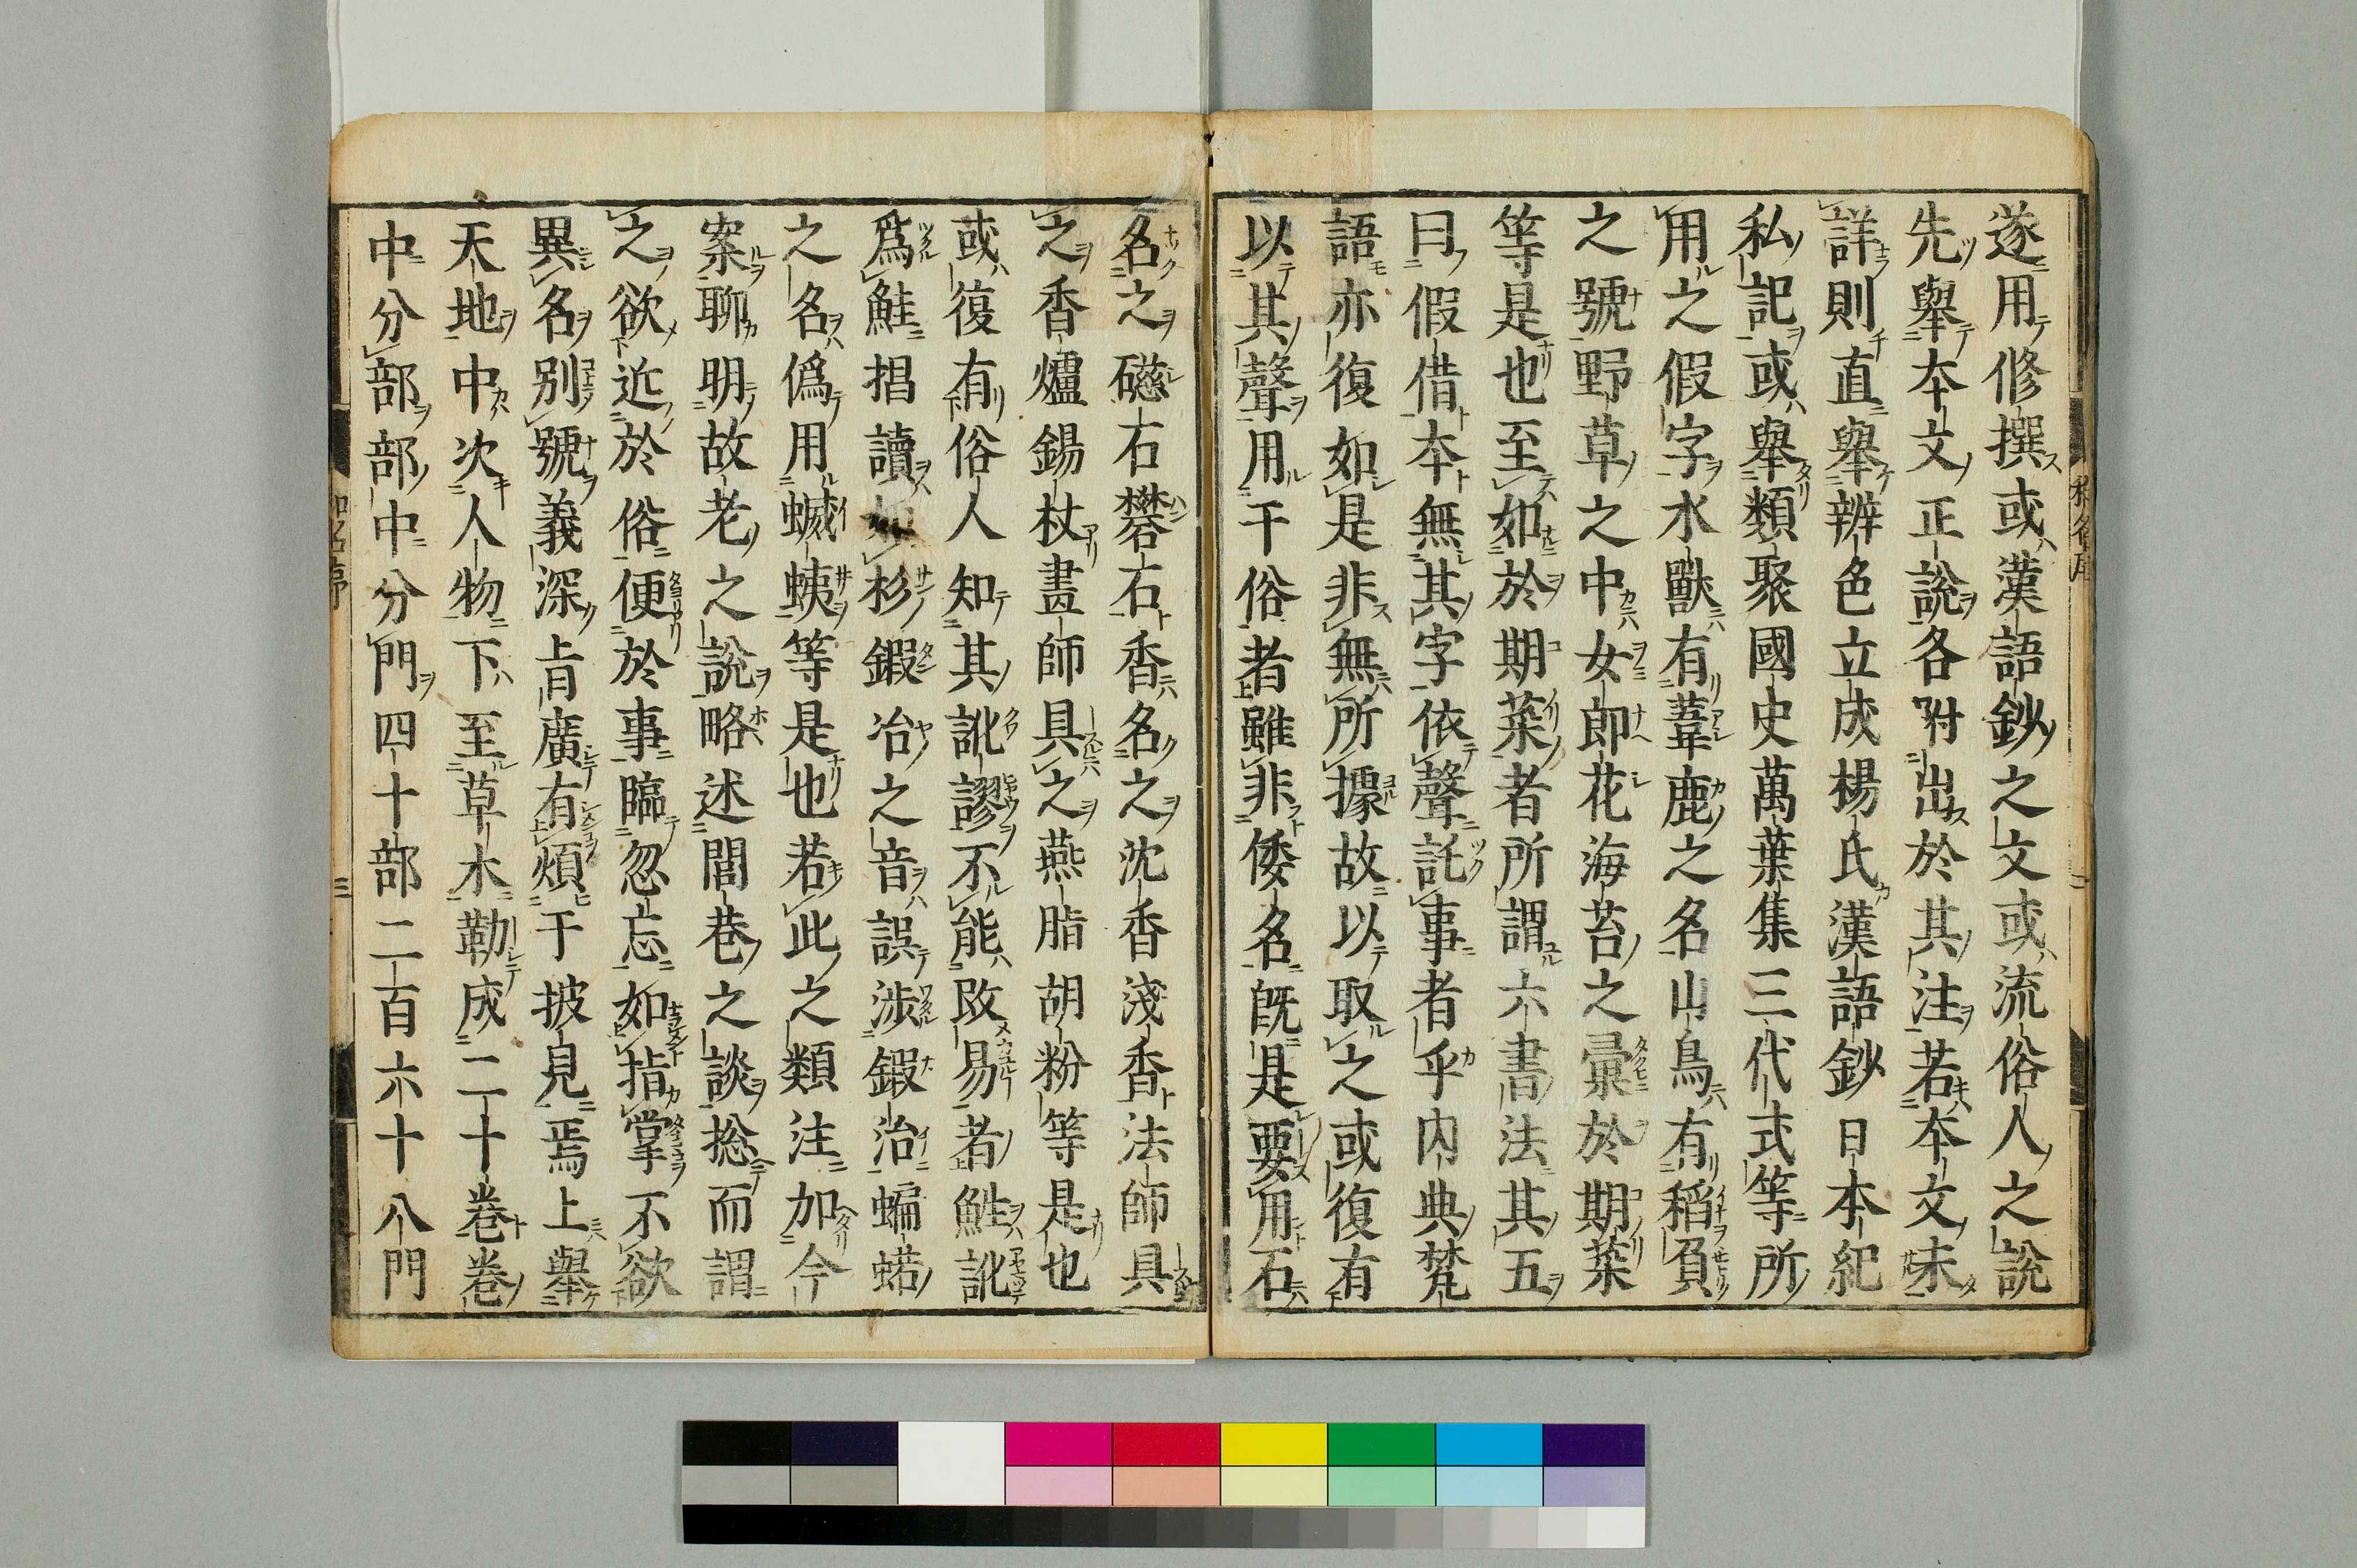 遂用修撰或漢語鈔之文或流俗人之說
先舉本文正說各附出於其注若本文未
詳則直舉辨色立成楊氏漢語鈔日本紀
私記或舉類聚國史萬葉集三代式等所
用之假字水獸有葦鹿之名山鳥有稻負
之號野草之中女郎花海苔之彙於期菜
等是也至如於期菜者所謂六書法其五
曰假借本無其字依聲託事者乎內典梵
語亦復如是非無所據故以取之或復有
以其聲用于俗者雖非倭名既是要用石
名之磁石礬石香名之沈香淺香法師具
之香爐錫杖畫師具之燕脂胡粉等是也
或復有俗人知其訛謬不能改易者鮏訛
爲鮭椙讀杉鍜冶之音誤涉鍜治蝙蛒
之名僞用蠛蛦等是也若此之類注加今
案聊明故老之說略述閭巷之談捴而謂
之欲近於俗便於事臨忽忘如指掌不欲
異名別號義深旨廣有煩于披見焉上舉
天地中次人物下至草木勒成二十卷卷
中分部部中分門四十部二百六十八門